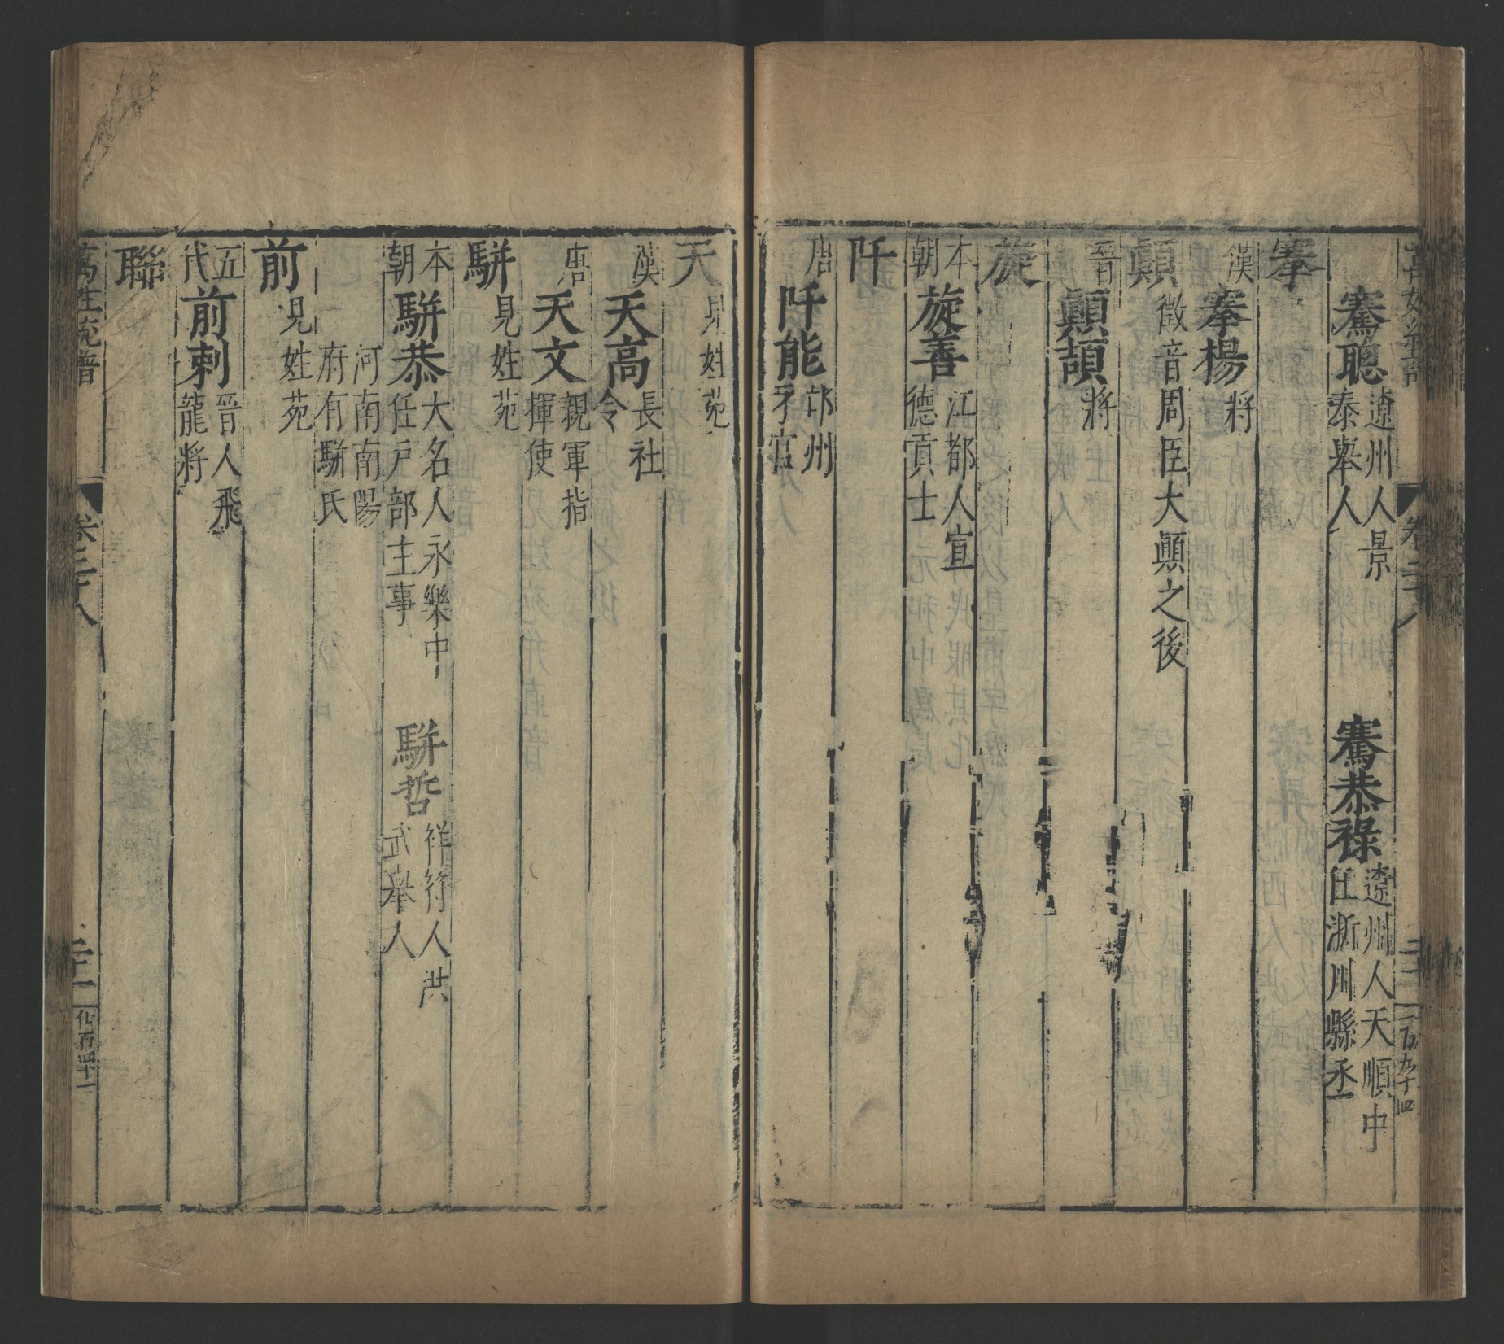 騫聰遼州人景泰舉人 騫恭祿遼州人天順中任浙川縣丞
搴
漢搴楊將
顛徵音周臣大顛之後
晉顛頡將
旋
本朝旋善江都人宣德貢士
阡
唐阡能邛州牙官
天見姓苑
漢天高長社令
唐天文親軍指揮使
駢見姓苑
本朝駢恭大名人永樂中任戸部主事 駢哲祥符人洪武舉人
河南南陽府有駢氏
前見姓苑
五代前刺晉人飛龍將
聯
萬姓統譜 卷二十八